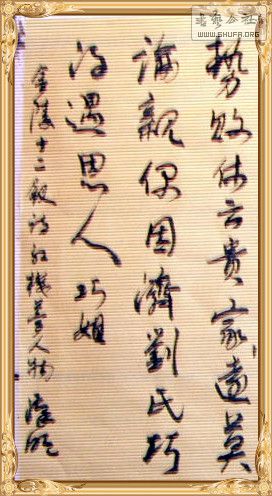 書藝公社
WWW.SHUFA.ORG
勢敗休云貴家莫
論親偶因濟劉氏巧
得遇恩人巧姐
金陵十二釵詩紅樓夢人物